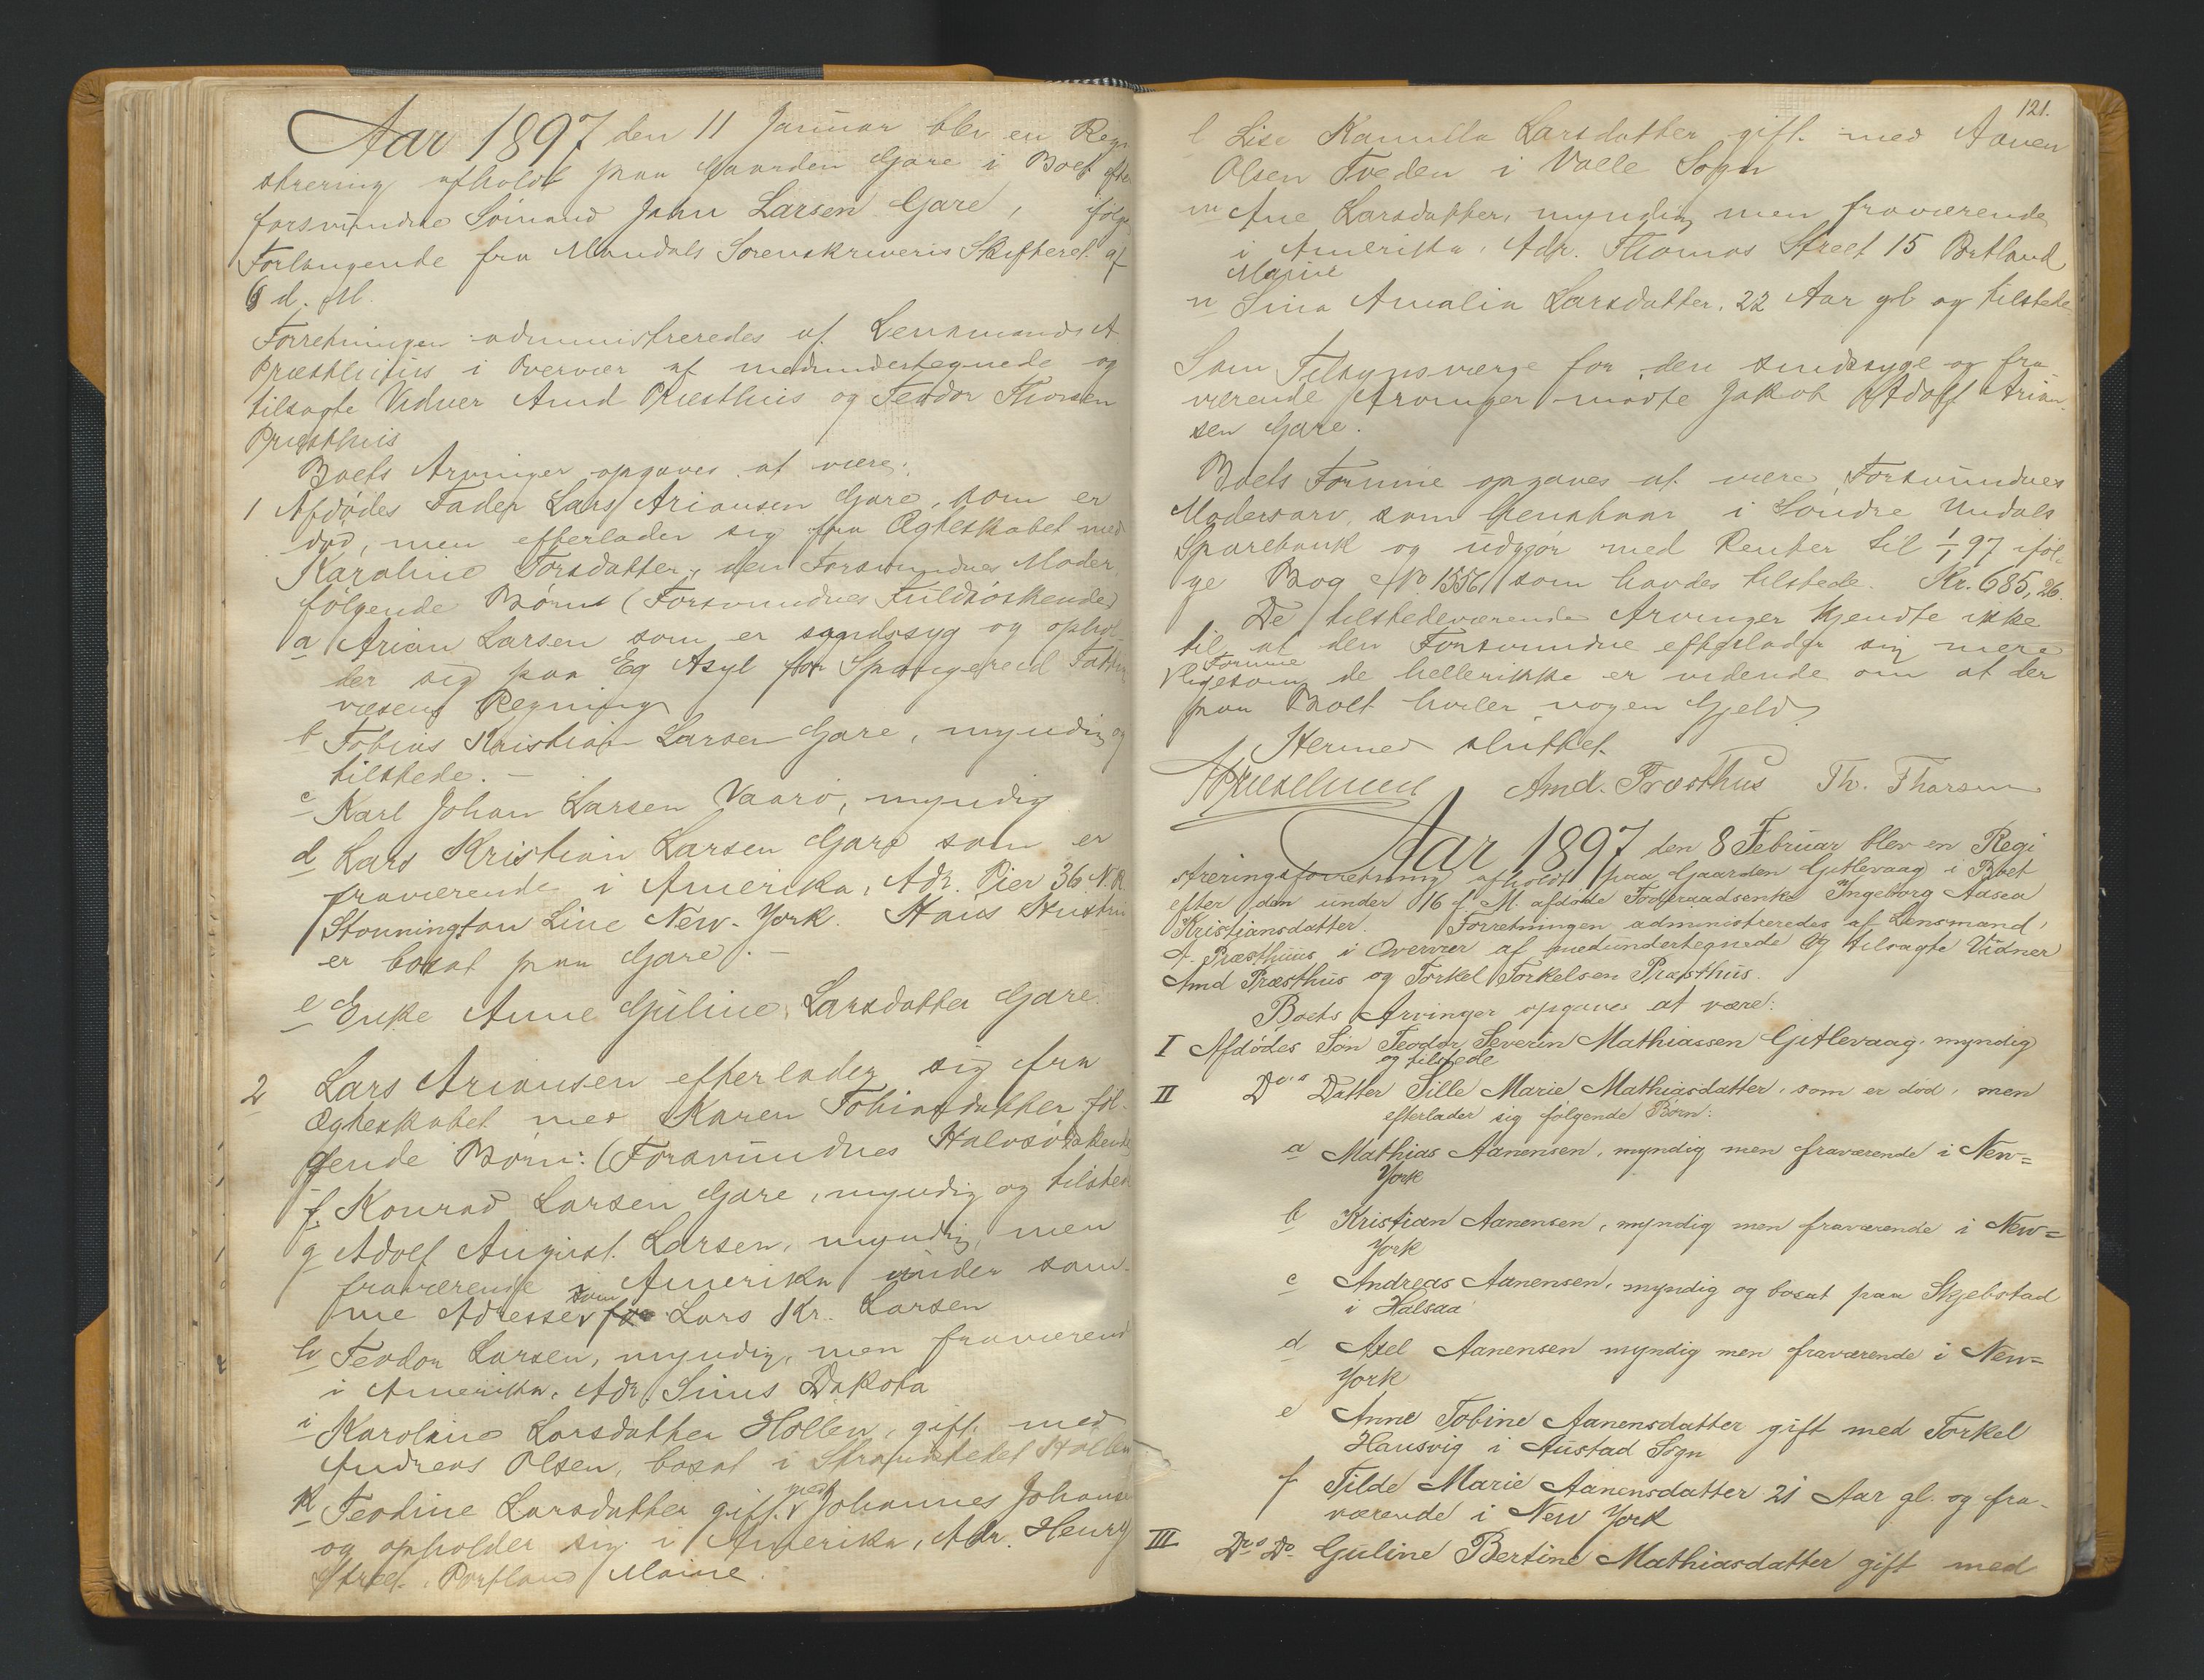 Aar 1897 den 11 Januar blev en Regi
strering afholdt paa Gaarden Gare i Boet efter
forsvundne Sømand Jahn Larsen Gare, ifølge
Forlangende fra Mandals Sorenskriveris Skifteret af
6 d. M.
Forretningen administreredes af Lensmand A
Præsthuus i Overvær af medundertegnede og
tilsagte Vidner Amd Præsthus og Teodor Thorsen
Præsthus
Boets Arvinger opgaves at være:
1 Afdødes Fader Lars Ariansen Gare, som er
død, men efterlader sig fra Ægteskabet med
Karoline Torsdatter, den Forsvundnes Moder,
følgende Børn (Forsvundnes Fuldsøskende)
a Arian Larsen som er sindssyg og ophol
der sig paa Eg Asyl for Spangereid Fattig
væsens Regning
b Tobias Kristian Larsen Gare, myndig og
tilstede. –
c Karl Johan Larsen Vaarø, myndig
d Lars Kristian Larsen Gare som er
fraværende i Amerika, Adr. Pier 36 N. R.
Stonnington Line New-York. Hans Hustru
er bosat paa Gare. –
e Enke Anne Guline Larsdatter Gare.
2 Lars Ariansen efterlader sig fra
Ægteskabet med Karen Tobiasdatter føl-
gende Børn: (Forsvundnes Halvsøskende
f. Konrad Larsen Gare, myndig og tilstede
g Adolf August Larsen, myndig, men
fraværende i Amerika under sam-
me Adresse som Lars Kr. Larsen
h Teodor Larsen, myndig, men fraværend
i Amerika, Adr. Sims Dakota
i Karoline Larsdatter Hollen, gift med
Andreas Olsen, bosat i Strandstedet Hollen
k Teodine Larsdatter gift med Johannes Johans
og opholder sig i Amerika, Adr. Henry
Street, Portland Maine.
121.
l Lise Kamilla Larsdatter gift med Aanen
Olsen Tveden i Valle Sogn
m Ane Larsdatter, myndig men fraværende
i Amerika, Adr. Thomas Street 15 Portland
Maine
n Sina Amalia Larsdatter, 22 Aar gl og tilstede
Som Tilsynsværge for den sindssyge og fra-
værende Arvinger mødte Jakob Adolf Arian-
sen Gare.
Boets Formue opgaves at være Forsvundnes
Modersarv, som henstaar i Søndre Undals
Sparebank og udgjør med Renter til 1/1 97 iføl-
ge Bog No 1556 som havdes tilstede. Kr. 685,26.
De tilstedeværende Arvinger kjendte ikke
til at den Forsvundne efterlader sig mere
Formue
ligesom de hellerikke er vidende om at der
paa Boet hviler nogen Gjeld.
Hermed sluttet.
APræsthuus Amd. Præsthus Th. Tharsen
Aar 1897 den 8 Februar blev en Regi
streringsforretning afholdt paa Gaarden Gitlevaag i Boet
efter den under 16 f. M. afdøde Føderaadsenke Ingeborg Aasea
Kristiansdatter. Forretningen administreredes af Lensmand
A. Præsthuus i Overvær af medundertegnede og tilsagte Vidner
Amd Præsthus og Torkel Torkelsen Præsthus.
Boets Arvinger opgaves at være:
I Afdødes Søn Teodor Severin Mathiassen Gitlevaag, myndig
og tilstede
II Do's Datter Tille Marie Mathiasdatter, som er død, men
efterlader sig følgende Børn:
a Mathias Aanensen, myndig men fraværende i New=
York
b Kristian Aanensen, myndig men fraværende i New=
York
c Andreas Aanensen, myndig og bosat paa Skjebstad
i Halsaa
d Axel Aanensen myndig men fraværende i New=
York
e Anne Tobine Aanensdatter gift med Torkel
Hausvig i Austad Sogn
f Tilde Marie Aanensdatter 21 Aar gl. og fra-
værende i New York
III Do's Do Guline Bertine Mathiasdatter gift med